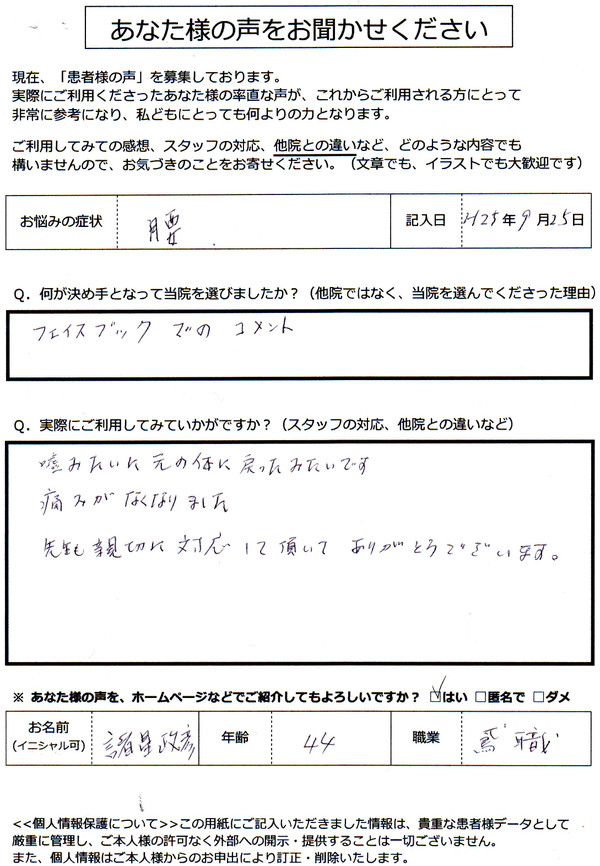 あなた様の声をお聞かせください
現在、「患者様の声」を募集しております。
実際にご利用くださったあなた様の率直な声が、これからご利用される方にとって
非常に参考になり、私どもにとっても何よりの力となります。
ご利用してみての感想、スタッフの対応、他院との違いなど、どのような内容でも
構いませんので、お気づきのことをお寄せください。（文章でも、イラストでも大歓迎です）
お悩みの症状 腰 記入日 H25年9月25日
Q．何が決め手となって当院を選びましたか？（他院ではなく、当院を選んでくださった理由）
フェイスブック での コメント
Q．実際にご利用してみていかがですか？（スタッフの対応、他院との違いなど）
嘘みたいに元の体に戻ったみたいです
痛みがなくなりました
先生も親切に対応して頂いて ありがとうございます。
※ あなた様の声を、ホームページなどでご紹介してもよろしいですか？ ☑はい □匿名で □ダメ
お名前 諸星政彦 年齢 44 職業 鳶職
(イニシャル可)
<<個人情報保護について>>この用紙にご記入いただきました情報は、貴重な患者様データとして
厳重に管理し、ご本人様の許可なく外部への開示・提供することは一切ございません。
また、個人情報はご本人様からのお申出により訂正・削除いたします。